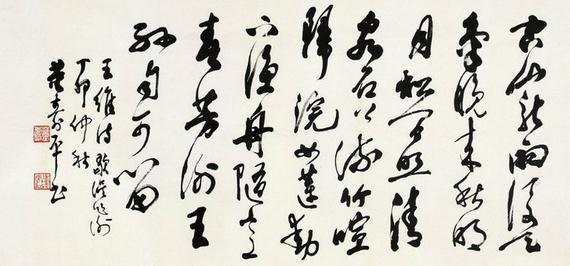 空山新雨後天
氣晚来秋明
月松間照清
泉石上流竹喧
歸浣女蓮動
下漁舟隨意
春芳王
孫自可留
王維詩歇誤作
丁卯仲秋
董壽平書